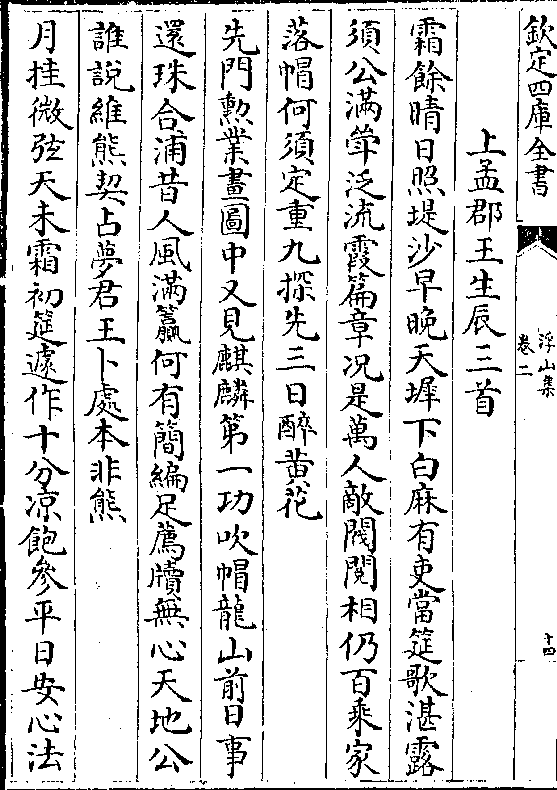 欽定四庫全書
浮山集
卷二
十四
上孟郡王生辰三首
霜餘晴日照堤沙早晚天墀下白麻有吏當筵歌湛露
須公滿斝泛流霞篇章况是萬人敵閥閱相仍百乘家
落帽何須定重九探先三日醉黄花
先門勲業畫圖中又見麒麟第一功吹帽龍山前日事
還珠合浦昔人風滿籯何有簡編足薦牘無心天地公
誰說維熊契占夢君王卜處本非熊
月挂微弦天未霜初筵遽作十分凉飽參平日安心法